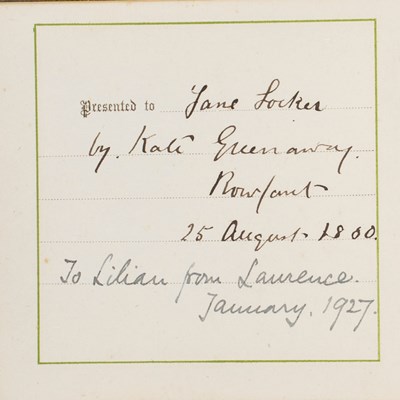 Presented to Jane Locker
by. Kate Greenaway.
Rowfant
25 August 1880.
To Lilian from Laurence.
January, 1927.